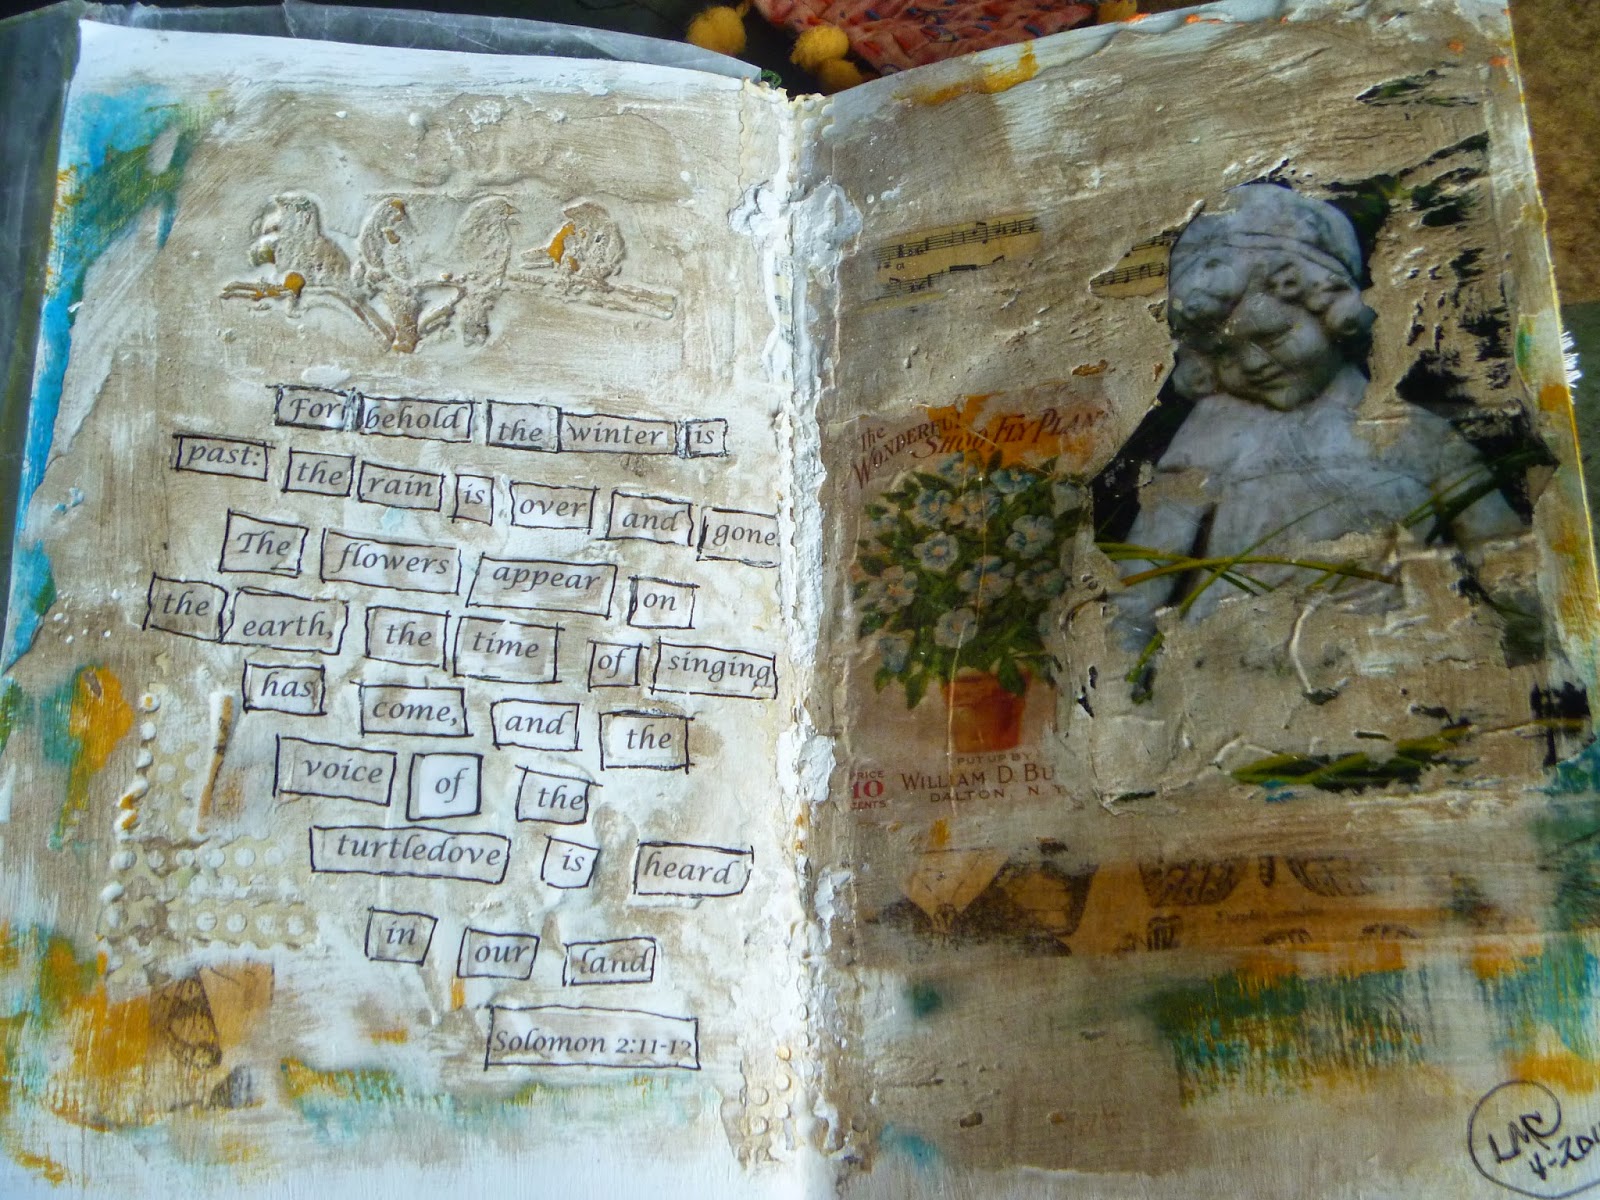 For behold the winter is
past: the rain is over and gone.
The flowers appear on
the earth, the time of singing
has come, and the
voice of the
turtledove is heard
in our land
Solomon 2:11-12
The
WONDERFUL
SHOO FLY PLANT
PUT UP BY
PRICE
10
CENTS
WILLIAM D. BU
DALTON, N. Y.
LMC